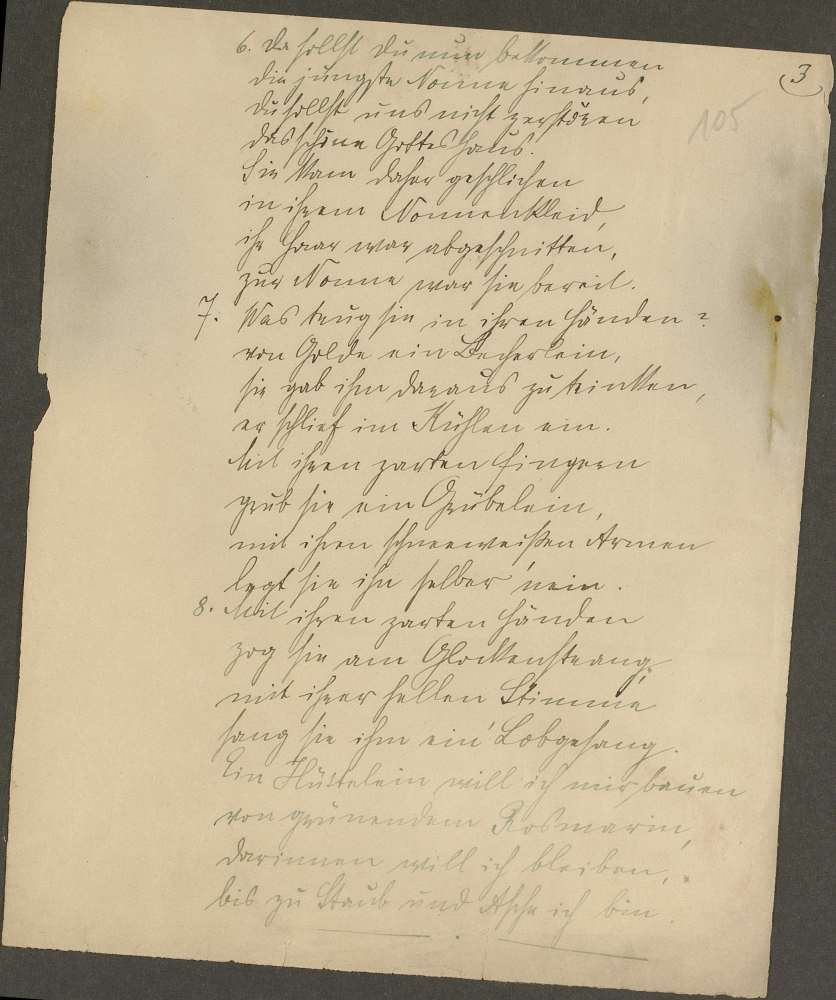 3
105
6. Da sollst du nun bekommen
die jüngste Nonne hinaus,
du sollst uns nicht zerstören
das schöne Gotteshaus.
Sie kam daher geschlichen
in ihrem Nonnenkleid,
ihr Haar war abgeschnitten,
zur Nonne war sie bereit.
7. Was trug sie in ihren Händen?
von Golde ein Becherlein,
sie gab ihm daraus zu trinken,
er schlief im Kühlen ein.
Mit ihren zarten Fingern
grub sie ein Grübelein,
mit ihren schneeweißen Armen
legt sie ihn selber 'nein.
8. Mit ihren zarten Händen
zog sie am Glockenstrang,
mit ihrer hellen Stimme
sang sie ihm ein' Lobgesang.
Ein Hüttelein will ich mir bauen
von grünendem Rosmarin,
darinnen will ich bleiben,
bis zu Staub und Asche ich bin.